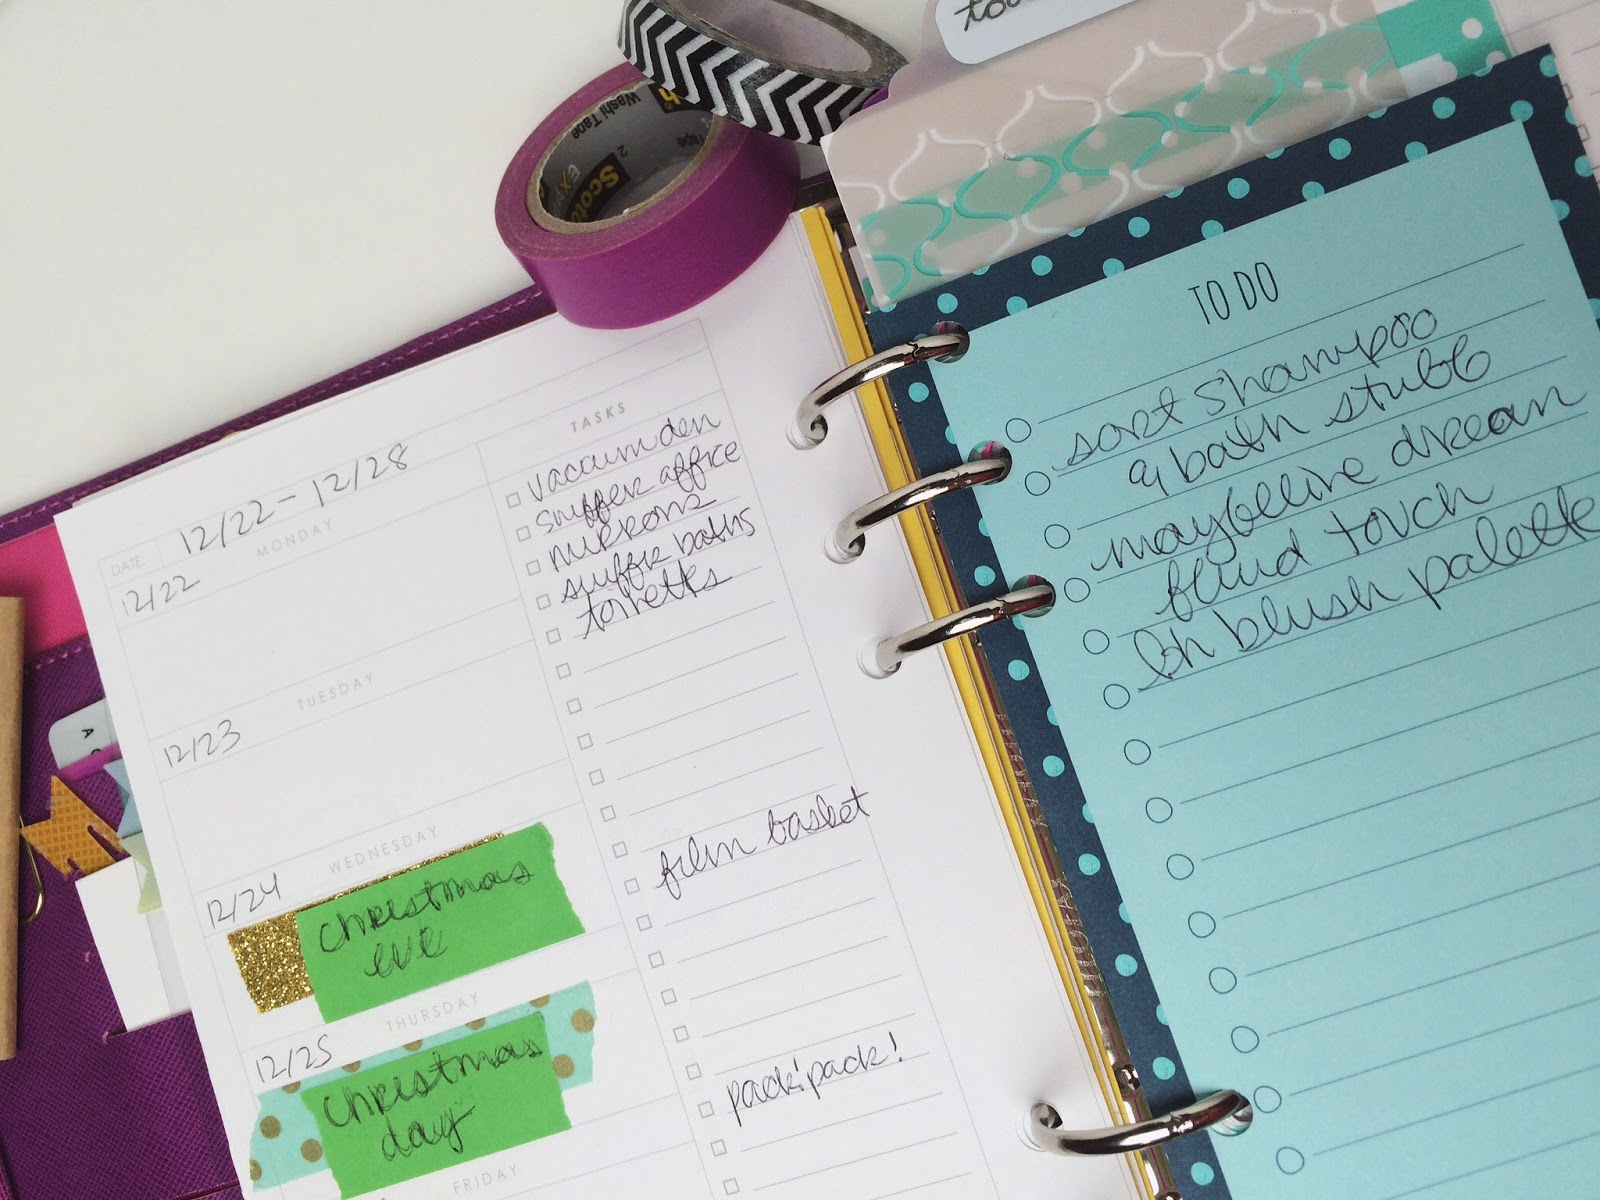 Scotch
Washi Tape
DATE:
12/22 - 12/28
MONDAY
12/22
TUESDAY
12/23
WEDNESDAY
12/24
christmas
eve
THURSDAY
12/25
christmas
day
FRIDAY
TASKS
vaccum den
swiffer office
swiffer baths
toiletts
film basket
pack! pack!
TO DO
sort shampoo
& bath stubb
maybelline dream
fluid touch
bh blush palette
A